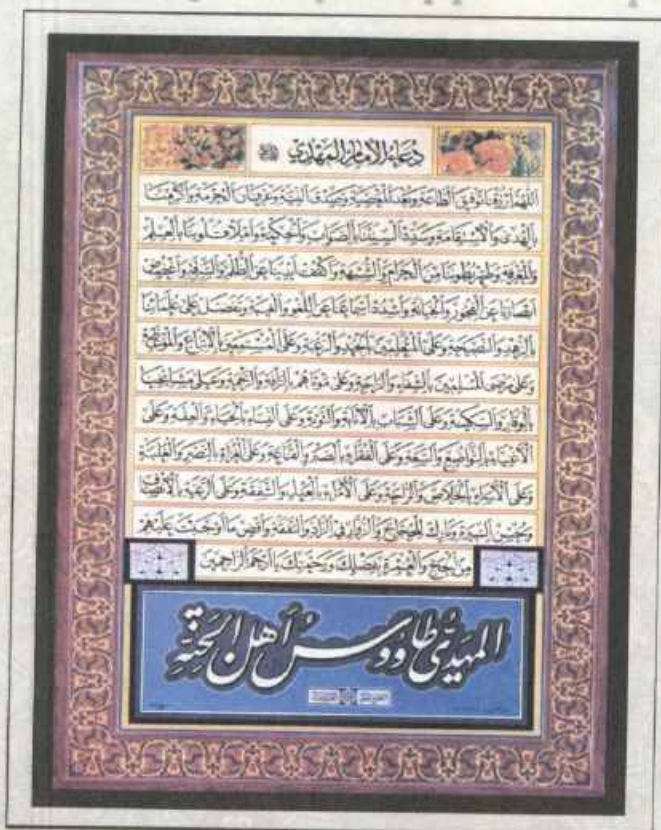 دعاء الإمام المهدي
اللهم ارزقنا توفيق الطاعة وبعد المعصية وصدق النية وعرفان الحرمة وأكرمنا
بالهدى والاستقامة وسدد ألسنتنا بالصواب والحكمة واملأ قلوبنا بالعلم
والمعرفة وطهر بطوننا من الحرام والشبهة واكفف أيدينا عن الظلم والسرقة واغضض
أبصارنا عن الفجور والخيانة واسدد أسماعنا عن اللغو والغيبة وتفضل على علمائنا
بالزهد والنصيحة وعلى المتعلمين بالجهد والرغبة وعلى المستمعين بالاتباع والموعظة
وعلى مرضى المسلمين بالشفاء والراحة وعلى موتاهم بالرأفة والرحمة وعلى مشايخنا
بالوقار والسكينة وعلى الشباب بالإنابة والتوبة وعلى النساء بالحياء والعفة وعلى
الأغنياء بالتواضع والسعة وعلى الفقراء بالصبر والقناعة وعلى الغزاة بالنصر والغلبة
وعلى الأسراء بالخلاص والراحة وعلى الأمراء بالعدل والشفقة وعلى الرعية بالإنصاف
وحسن السيرة وبارك للحجاج والزوار في الزاد والنفقة واقض ما أوجبت عليهم
من الحج والعمرة بفضلك ورحمتك يا أرحم الراحمين
المهدي طاووس أهل الجنة